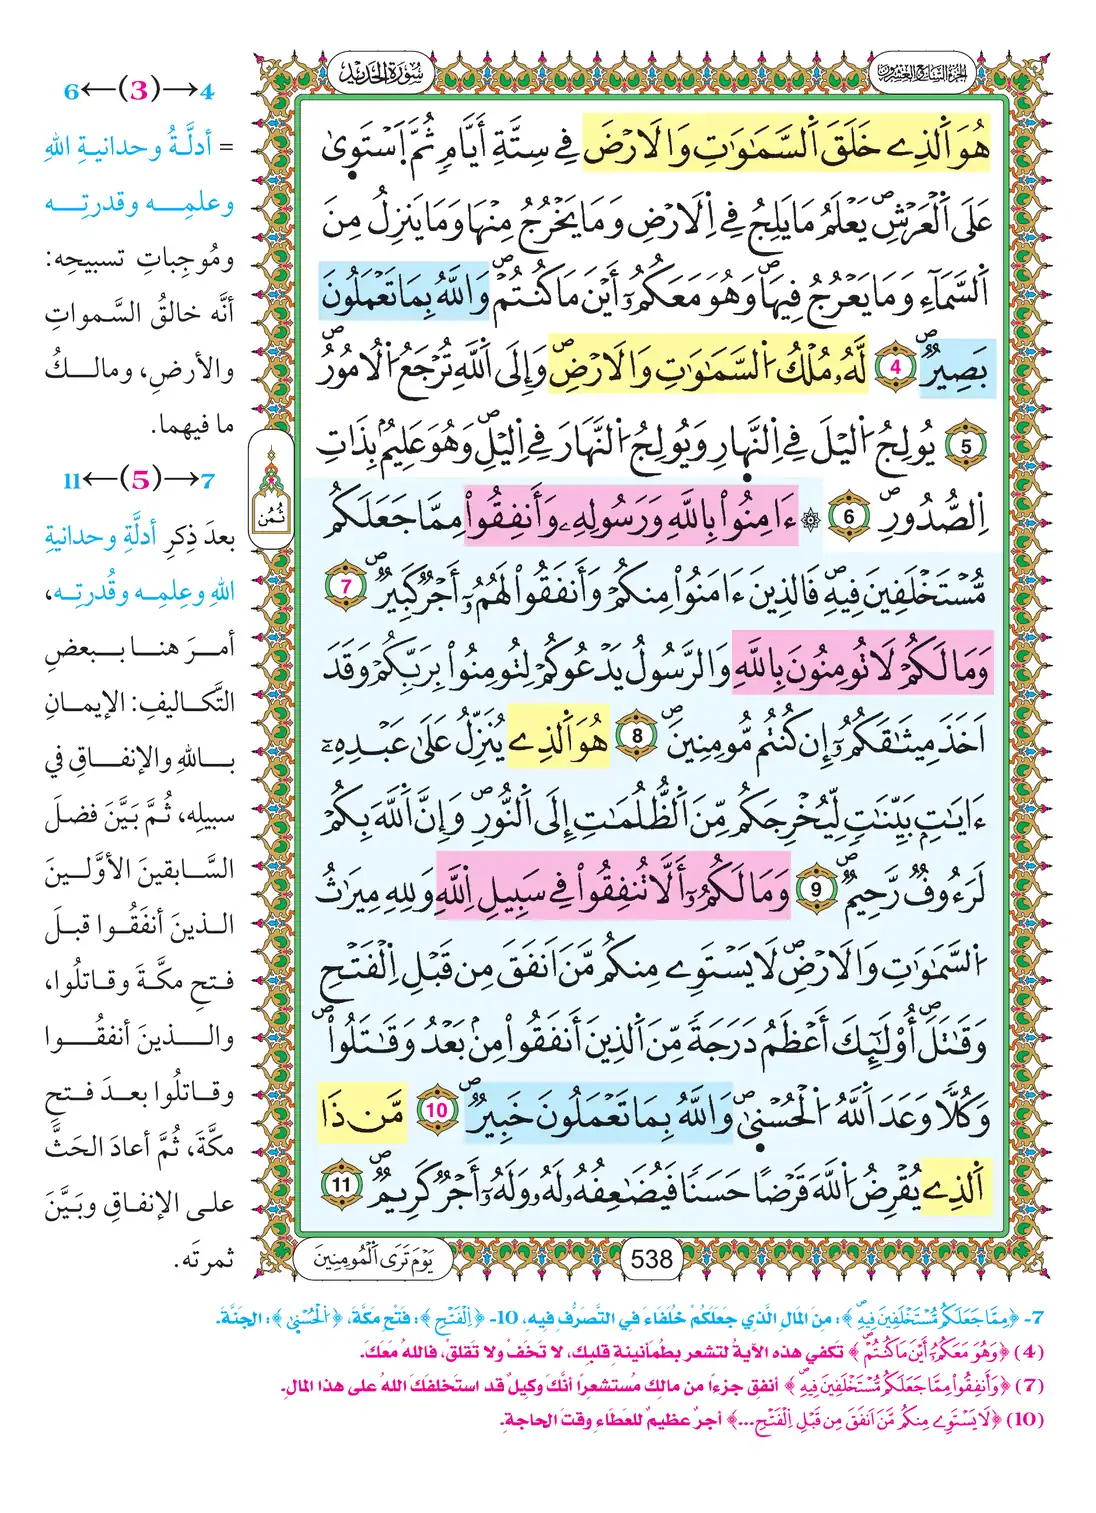 الجزء السابع والعشرون
سورة الحديد
هُوَ اَ۬لذِے خَلَقَ اَ۬لسَّمَٰوَٰتِ وَالَارْضَ فِے سِتَّةِ أَيَّامٖ ثُمَّ اَ۪سْتَو۪يٰ
عَلَي اَ۬لْعَرْشِۖ يَعْلَمُ مَا يَلِجُ فِے اِ۬لَارْضِ وَمَا يَخْرُجُ مِنْهَا وَمَا يَنزِلُ مِنَ
اَ۬لسَّمَآءِ وَمَا يَعْرُجُ فِيهَاۖ وَهُوَ مَعَكُمُۥٓ أَيْنَ مَا كُنتُمْۖ وَاللَّهُ بِمَا تَعْمَلُونَ
بَصِيرٞۖ 4 لَّهُۥ مُلْكُ اُ۬لسَّمَٰوَٰتِ وَالَارْضِۖ وَإِلَي اَ۬للَّهِ تُرْجَعُ اُ۬لُامُورُۖ
5 يُولِجُ اُ۬ليْلَ فِے اِ۬لنَّه۪ارِ وَيُولِجُ اُ۬لنَّهَارَ فِے اِ۬ليْلِۖ وَهُوَ عَلِيمُۢ بِذَاتِ
اِ۬لصُّدُورِۖ 6 ۞ ءَامِنُواْ بِاللَّهِ وَرَسُولِهِۦ وَأَنفِقُواْ مِمَّا جَعَلَكُم
مُّسْتَخْلَفِينَ فِيهِۖ فَالذِينَ ءَامَنُواْ مِنكُمْ وَأَنفَقُواْ لَهُمُۥٓ أَجْرٞ كَبِيرٞۖ 7
وَمَا لَكُمْ لَا تُومِنُونَ بِاللَّهِ وَالرَّسُولُ يَدْعُوكُمْ لِتُومِنُواْ بِرَبِّكُمْ وَقَدَ
اَخَذَ مِيثَٰقَكُمُۥٓ إِن كُنتُم مُّومِنِينَۖ 8 هُوَ اَ۬لذِے يُنَزِّلُ عَلَىٰ عَبْدِهِۦٓ
ءَايَٰتِۢ بَيِّنَٰتٖ لِّيُخْرِجَكُم مِّنَ اَ۬لظُّلُمَٰتِ إِلَي اَ۬لنُّورِۖ وَإِنَّ اَ۬للَّهَ بِكُمْ
لَرَءُوفٞ رَّحِيمٞۖ 9 وَمَا لَكُمُۥٓ أَلَّا تُنفِقُواْ فِے سَبِيلِ اِ۬للَّهِ وَلِلهِ مِيرَٰثُ
اُ۬لسَّمَٰوَٰتِ وَالَارْضِۖ لَا يَسْتَوِے مِنكُم مَّنَ اَنفَقَ مِن قَبْلِ اِ۬لْفَتْحِ
وَقَٰتَلَۖ أُوْلَٰٓئِكَ أَعْظَمُ دَرَجَةٗ مِّنَ اَ۬لذِينَ أَنفَقُواْ مِنۢ بَعْدُ وَقَٰتَلُواْۖ
وَكُلّاٗ وَعَدَ اَ۬للَّهُ اُ۬لْحُسْن۪يٰۖ وَاللَّهُ بِمَا تَعْمَلُونَ خَبِيرٞۖ 10 مَّن ذَا
اَ۬لذِے يُقْرِضُ اُ۬للَّهَ قَرْضاً حَسَناٗ فَيُضَٰعِفُهُۥ لَهُۥ وَلَهُۥٓ أَجْرٞ كَرِيمٞۖ 11
ثُمُن
538
يَوْمَ تَرَي اَ۬لْمُومِنِينَ
4→(3)←6
= أدلَّةُ وحدانيةِ اللهِ
وعلمِه وقدرتِه
ومُوجِباتِ تسبيحِه:
أنَّه خالقُ السَّمواتِ
والأرضِ، ومالكُ
ما فيهما.
7→(5)←11
بعدَ ذِكرِ أدلَّةِ وحدانيةِ
اللهِ وعِلمِه وقُدرتِه،
أمرَ هنا ببعضِ
التَّكاليفِ: الإيمانِ
باللهِ والإنفاقِ في
سبيلِه، ثُمَّ بَيَّنَ فضلَ
السَّابقينَ الأوَّلينَ
الذينَ أنفَقُوا قبلَ
فتحِ مكَّةَ وقاتلُوا،
والذينَ أنفقُوا
وقاتلُوا بعدَ فتحِ
مكَّةَ، ثُمَّ أعادَ الحَثَّ
على الإنفاقِ وبَيَّنَ
ثمرتَه.
7- ﴿مِمَّا جَعَلَكُم مُّسْتَخْلَفِينَ فِيهِۖ﴾: مِنَ المَالِ الَّذِي جَعَلَكُمْ خُلَفَاءَ فِي التَّصَرُّفِ فِيهِ، 10- ﴿اِ۬لْفَتْحِ﴾: فَتْحِ مَكَّةَ، ﴿اُ۬لْحُسْن۪يٰ﴾: الجَنَّةَ.
(4) ﴿وَهُوَ مَعَكُمُۥٓ أَيْنَ مَا كُنتُمْۖ﴾ تكفي هذه الآيةُ لتشعر بطمأنينةِ قلبِك، لا تَخَفْ ولا تَقلقْ، فاللهُ مَعَكَ.
(7) ﴿وَأَنفِقُواْ مِمَّا جَعَلَكُم مُّسْتَخْلَفِينَ فِيهِۖ﴾ أنفِق جزءًا من مالِك مُستشعرًا أنَّكَ وكيلٌ قد استَخلفَكَ اللهُ على هذا المالِ.
(10) ﴿لَا يَسْتَوِے مِنكُم مَّنَ اَنفَقَ مِن قَبْلِ اِ۬لْفَتْحِ...﴾ أجرٌ عظيمٌ للعَطَاءِ وقتَ الحاجةِ.